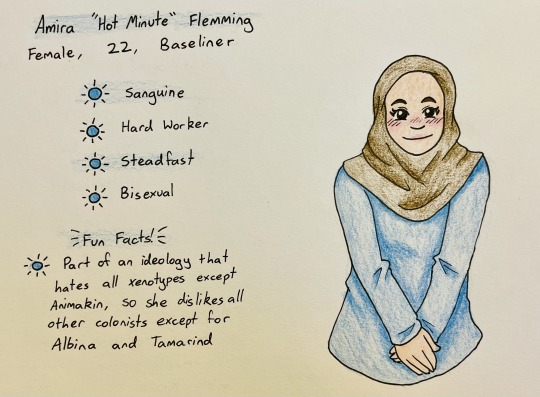 Amira "Hot Minute" Flemming
Female, 22, Baseliner
Sanguine
Hard Worker
Steadfast
Bisexual
Fun Facts!
Part of an ideology that
hates all xenotypes except
Animakin, so she dislikes all
other colonists except for
Albina and Tamarind